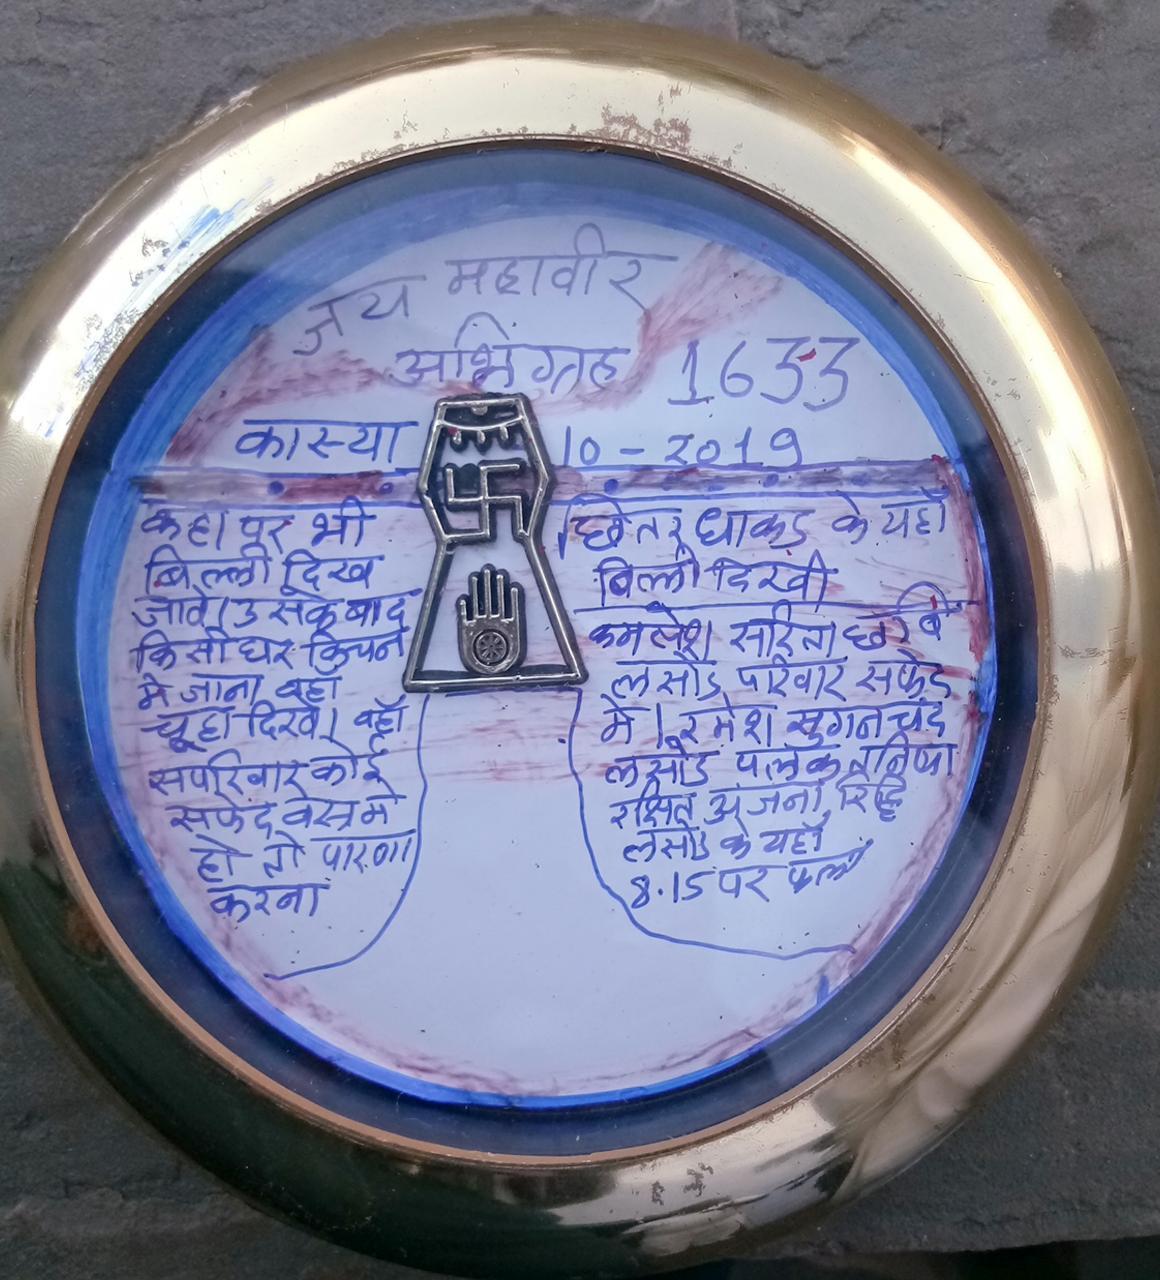 जय महावीर
अभिग्रह 1633
कास्या 10-2019
कहा पर भी
बिल्ली दिख
जावे। उसके बाद
किसी घर किचन
मे जाना वहाँ
चूहा दिखे। वहाँ
सपरिवार कोई
सफेद वस्त्र मे
हो तो पारणा
करना
छितर धाकड के यहाँ
बिल्ली दिखी
कमलेश सरिता छवि
लसोड परिवार सफेद
मे। रमेश सुगनचंद
लसोड पलक तनिषा
रक्षित अंजना रिद्धि
लसोड के यहाँ
8.15 पर फला